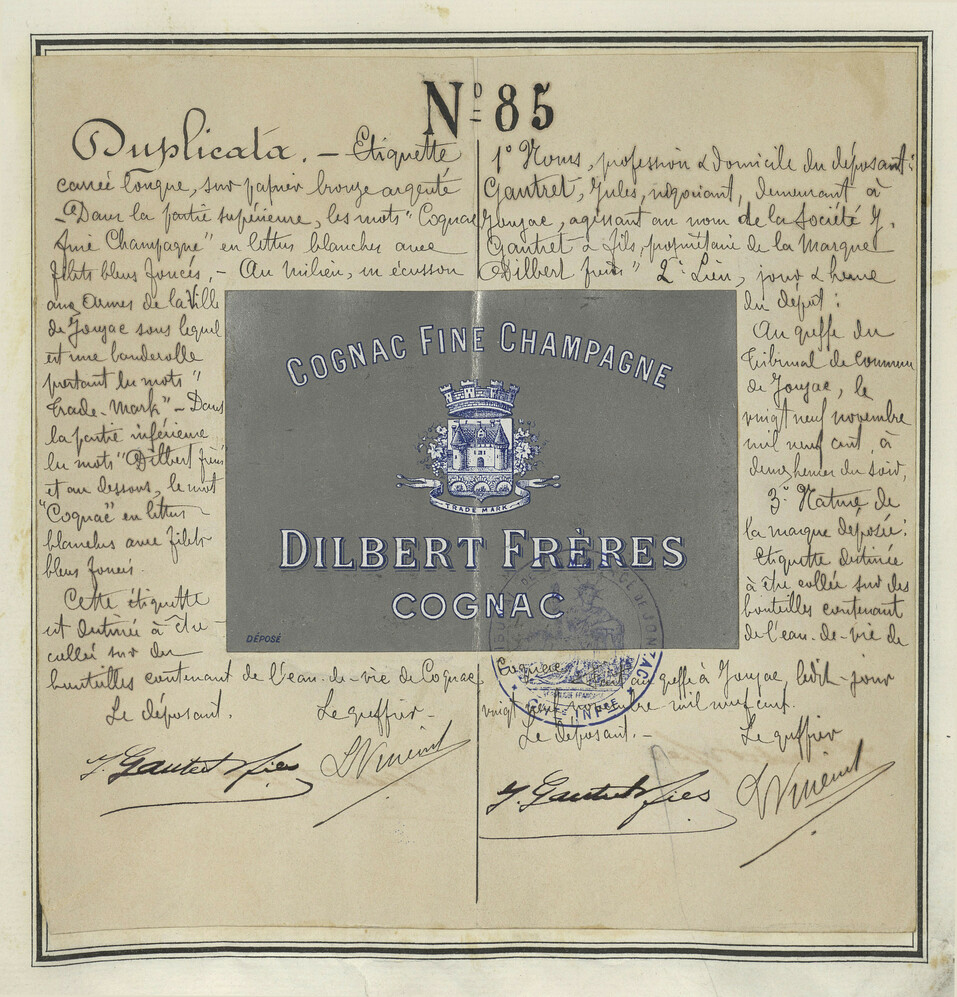 Nº 85
Duplicata. — Etiquette
carrée longue, sur papier bronze argenté
— Dans la partie supérieure, les mots "Cognac
fine Champagne" en lettres blanches avec
filets bleus foncés, — Au milieu, un écusson
aux armes de la Ville
de Jonzac sous lequel
est une banderolle
portant les mots "
Trade-Mark" — Dans
la partie inférieure
les mots "Dilbert frères
et au dessous, le mot
"Cognac" en lettres
blanches avec filets
bleus foncés.
Cette étiquette
est destinée à être
collée sur des
bouteilles contenant de l'eau-de-vie de Cognac
Le déposant. Le greffier
J. Gautret & fils LVincent
1º Noms, profession & domicile du déposant:
Gautret, Jules, négociant, demeurant à
Jonzac, agissant au nom de la Société J.
Gautret & fils, propriétaire de la marque
"Dilbert frères" 2º Lieu, jour & heure
du dépôt:
Au greffe du
Tribunal de Commerce
de Jonzac, le
vingt neuf novembre
mil neuf cent, à
deux heures du soir,
3º Nature de
la marque déposée:
Etiquette destinée
à être collée sur des
bouteilles contenant
de l'eau-de-vie de
Cognac au greffe à Jonzac, ledit jour
vingt neuf novembre mil neuf cent.
Le déposant. — Le greffier
J. Gautret & fils LVincent
COGNAC FINE CHAMPAGNE
TRADE MARK
DILBERT FRÈRES
COGNAC
DÉPOSÉ
TRIBUNAL DE COMMERCE DE JONZAC
RÉPUBLIQUE FRANÇAISE
CHTE INFRE